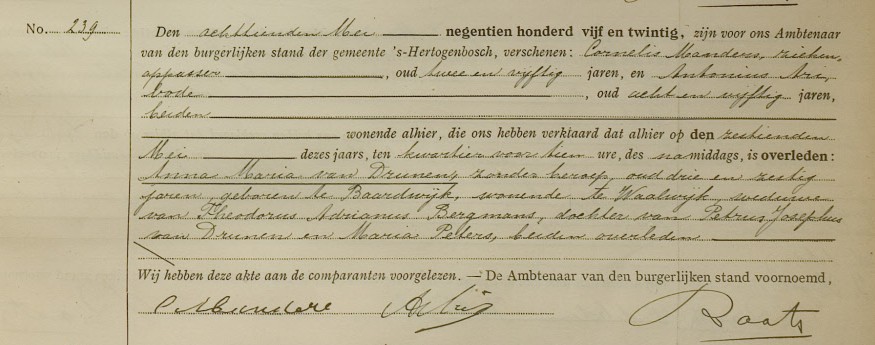 No. 239
Den achttienden Mei negentien honderd vijf en twintig, zijn voor ons Ambtenaar
van den burgerlijken stand der gemeente 's-Hertogenbosch, verschenen: Cornelis Manders, zieken-
oppasser, oud twee en vijftig jaren, en Antonius
bode, oud acht en vijftig jaren,
beiden
wonende alhier, die ons hebben verklaard dat alhier op den zestienden
Mei dezes jaars, ten kwartier voor tien ure, des namiddags, is overleden:
Anna Maria van Drunen, zonder beroep, oud drie en zestig
jaren, geboren te Baardwijk, wonende te Waalwijk, weduwe
van Theodorus Adrianus Bergmans, dochter van Petrus Josephus
van Drunen en Maria Peters, beiden overleden
Wij hebben deze akte aan de comparanten voorgelezen. — De Ambtenaar van den burgerlijken stand voornoemd,
C Manders